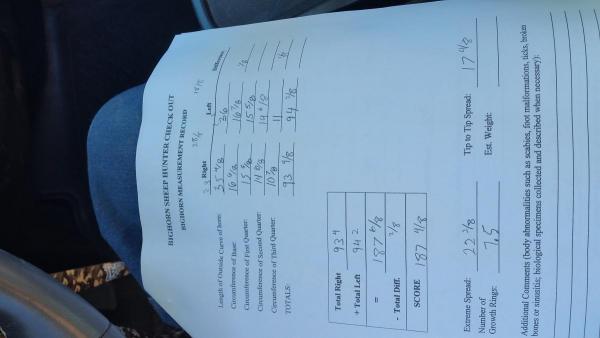 BIGHORN SHEEP HUNTER CHECK OUT
BIGHORN MEASUREMENT RECORD
Right Left Difference
Length of Outside Curve of horn: 35 4/8 36
Circumference of Base: 16 4/8 16 7/8
Circumference of First Quarter: 15 5/8 15 5/8 1/8
Circumference of Second Quarter: 14 6/8 14 6/8
Circumference of Third Quarter: 10 7/8 11 1/8
TOTALS: 93 4/8 94 2/8
Total Right 93 4
+ Total Left 94 2
= 187 6/8
- Total Diff. 2/8
SCORE 187 4/8
Extreme Spread: 22 3/8 Tip to Tip Spread: 17 4/8
Number of
Growth Rings: 7.5 Est. Weight:
Additional Comments (body abnormalities such as scabies, foot malformations, ticks, broken
bones or sinusitis; biological specimens collected and described when necessary):